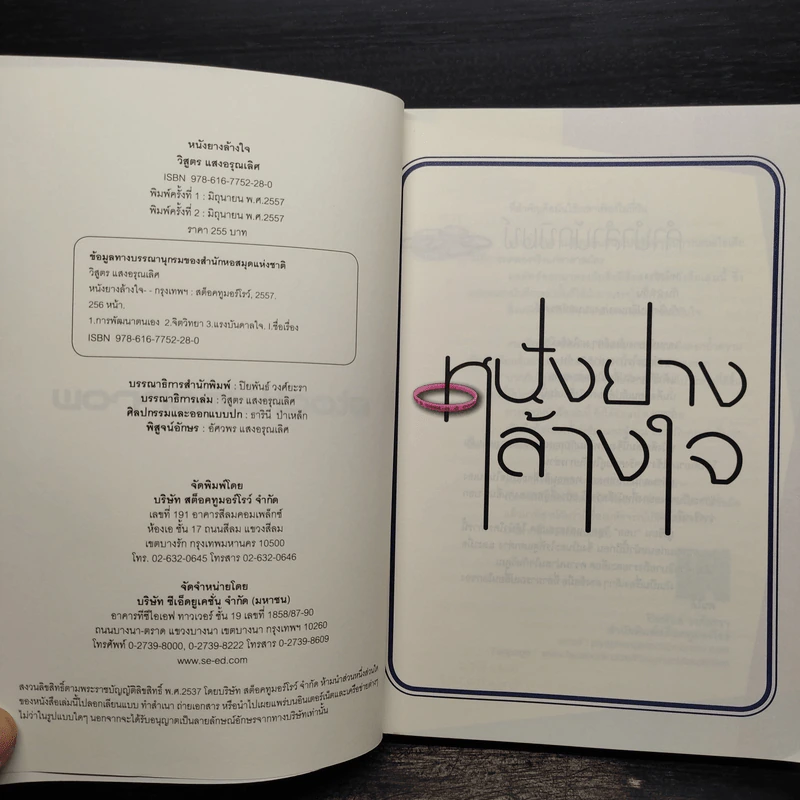 หนังยางล้างใจ
วิสูตร แสงอรุณเลิศ
ISBN 978-616-7752-28-0
พิมพ์ครั้งที่ 1 : มิถุนายน พ.ศ.2557
พิมพ์ครั้งที่ 2 : มิถุนายน พ.ศ.2557
ราคา 255 บาท
ข้อมูลทางบรรณานุกรมของสำนักหอสมุดแห่งชาติ
วิสูตร แสงอรุณเลิศ
หนังยางล้างใจ- - กรุงเทพฯ : สต็อคทูมอร์โรว์, 2557.
256 หน้า.
1.การพัฒนาตนเอง 2.จิตวิทยา 3.แรงบันดาลใจ. I.ชื่อเรื่อง
ISBN 978-616-7752-28-0
บรรณาธิการสำนักพิมพ์ : ปิยพันธ์ วงศ์ยะรา
บรรณาธิการเล่ม : วิสูตร แสงอรุณเลิศ
ศิลปกรรมและออกแบบปก : ธารินี ป่าเหล็ก
พิสูจน์อักษร : อัศวพร แสงอรุณเลิศ
จัดพิมพ์โดย
บริษัท สต็อคทูมอร์โรว์ จำกัด
เลขที่ 191 อาคารสีลมคอมเพล็กซ์
ห้องเอ ชั้น 17 ถนนสีลม แขวงสีลม
เขตบางรัก กรุงเทพมหานคร 10500
โทร. 02-632-0645 โทรสาร 02-632-0646
จัดจำหน่ายโดย
บริษัท ซีเอ็ดยูเคชั่น จำกัด (มหาชน)
อาคารทีซีไอเอฟ ทาวเวอร์ ชั้น 19 เลขที่ 1858/87-90
ถนนบางนา-ตราด แขวงบางนา เขตบางนา กรุงเทพฯ 10260
โทรศัพท์ 0-2739-8000, 0-2739-8222 โทรสาร 0-2739-8609
www.se-ed.com
สงวนลิขสิทธิ์ตามพระราชบัญญัติลิขสิทธิ์ พ.ศ.2537 โดยบริษัท สต็อคทูมอร์โรว์ จำกัด ห้ามนำส่วนหนึ่งส่วนใด
ของหนังสือเล่มนี้ไปลอกเลียนแบบ ทำสำเนา ถ่ายเอกสาร หรือนำไปเผยแพร่บนอินเตอร์เน็ตและเครือข่ายต่างๆ
ไม่ว่าในรูปแบบใดๆ นอกจากจะได้รับอนุญาตเป็นลายลักษณ์อักษรจากทางบริษัทเท่านั้น
หนังยาง
ล้างใจ